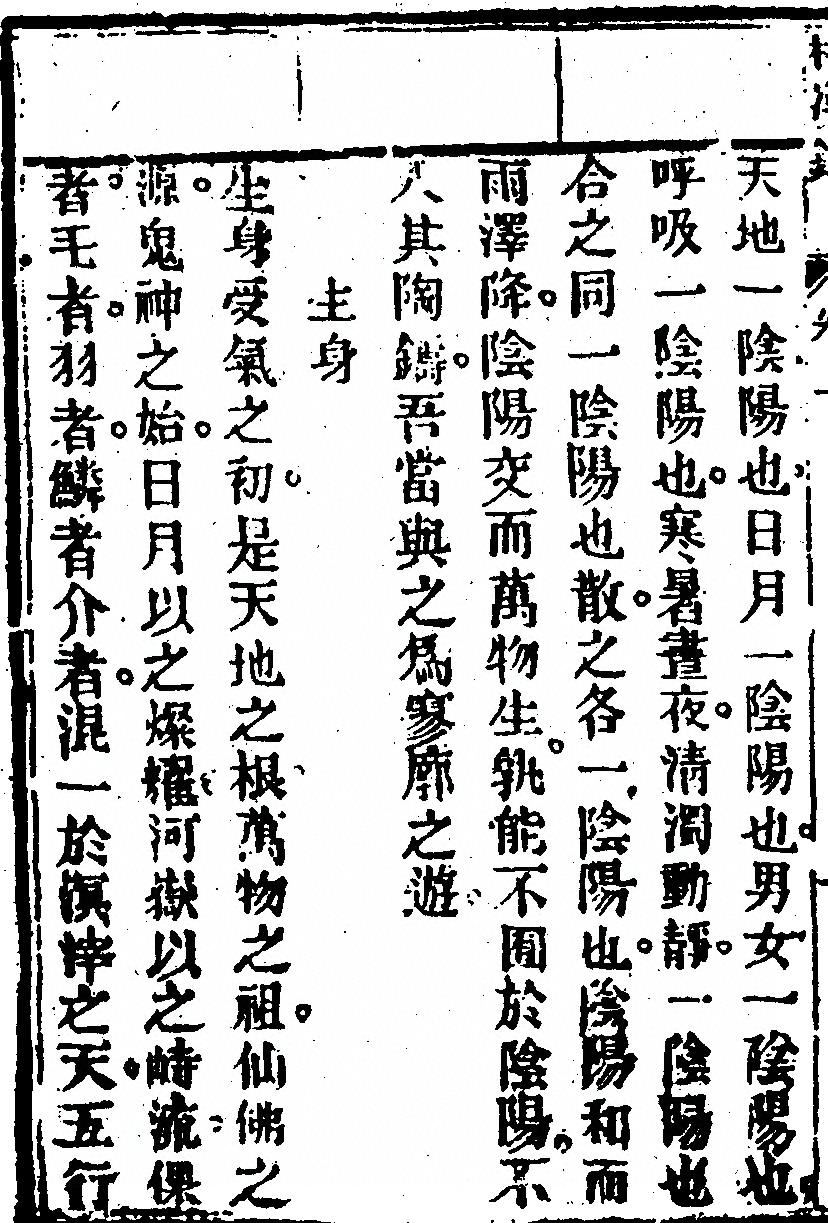 天地一陰陽也日月一陰陽也男女一陰陽也
呼吸一陰陽也寒暑晝夜清濁動靜一陰陽也
合之同一陰陽也散之各一陰陽也陰陽和而
雨澤降陰陽交而萬物生孰能不囿於陰陽不
入其陶鑄吾當與之為寥廓之遊
生身
生身受氣之初是天地之根萬物之祖仙佛之
源鬼神之始日月以之燦耀河嶽以之峙流倮
者毛者羽者鱗者介者混一於溟涬之天五行